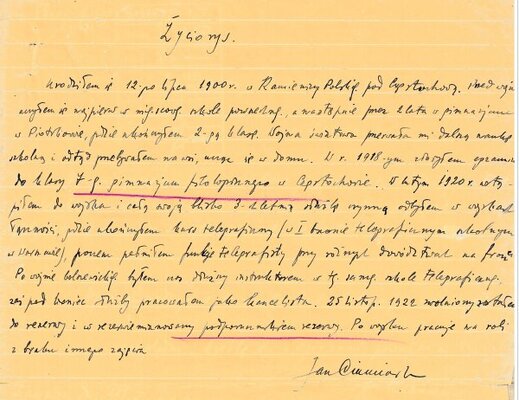 Życiorys.
Urodziłem się 12-go lipca 1900 r. w Kamienicy Polskiej pod Częstochową. Przed wojną
uczyłem się najpierw w miejscowej szkole powszechnej, a następnie przez 2 lata w gimnazjum
w Piotrkowie, gdzie ukończyłem 2-gą klasę. Wojna światowa przerwała mi dalszą naukę
szkolną i odtąd przebywałem na wsi, ucząc się w domu. W r. 1918-ym zdałem egzamin
do klasy 7-ej gimnazjum filologicznego w Częstochowie. W lutym 1920 r. wstą-
piłem do wojska i całą swoją blisko 3-letnią służbę czynną odbyłem w wojskach
łączności, gdzie ukończyłem kurs telegraficzny (w I baonie telegraficznym zapasowym
w Warszawie), potem pełniłem funkcję telegrafisty przy różnych dowództwach na froncie
Po wojnie bolszewickiej byłem czas dłuższy instruktorem w tej samej szkole telegraficznej,
zaś pod koniec służby pracowałem jako kancelista. 25 listop. 1922 zwolniony zostałem
do rezerwy i w mianowany podporucznikiem rezerwy. Po wojsku pracuję na roli
z braku innego zajęcia
Jan